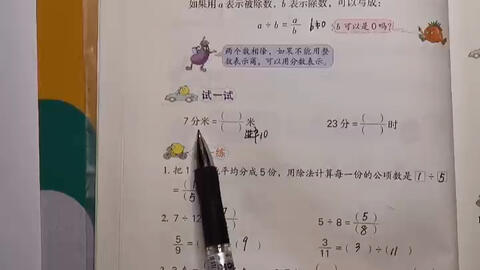 如果用 a 表示被除数，b 表示除数，可以写成：
a ÷ b = a/b b≠0 b 可以是 0 吗？
两个数相除，如果不能用整
数表示商，可以用分数表示。
试一试
7 分米 = ( )/( ) 米 23 分 = ( )/( ) 时
进率10
练
1. 把 1 平均分成 5 份，用除法计算每一份的公顷数是 1 ÷ 5
2. 7 ÷ 12 5 ÷ 8 = (5)/(8)
5/9 = 9) 3/11 = (3) ÷ (11)